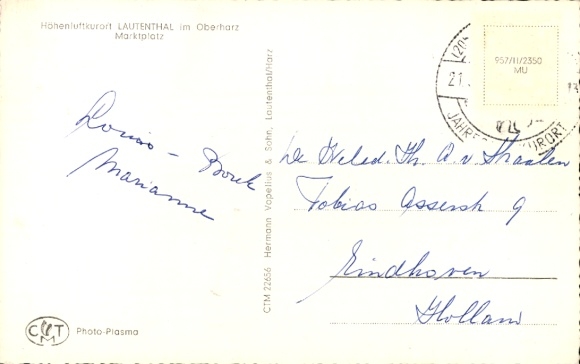 Höhenluftkurort LAUTENTHAL im Oberharz
Marktplatz
Louise - Bouk
Marianne
CTM 22656 Hermann Vopelius & Sohn, Lautenthal/Harz
957/11/2350
MU
(20
21
JAHRE
KURORT
De Weled. Hr. A. v. Straalen
Tobias Asserstr 9
Eindhoven
Holland
CTM
Photo-Plasma